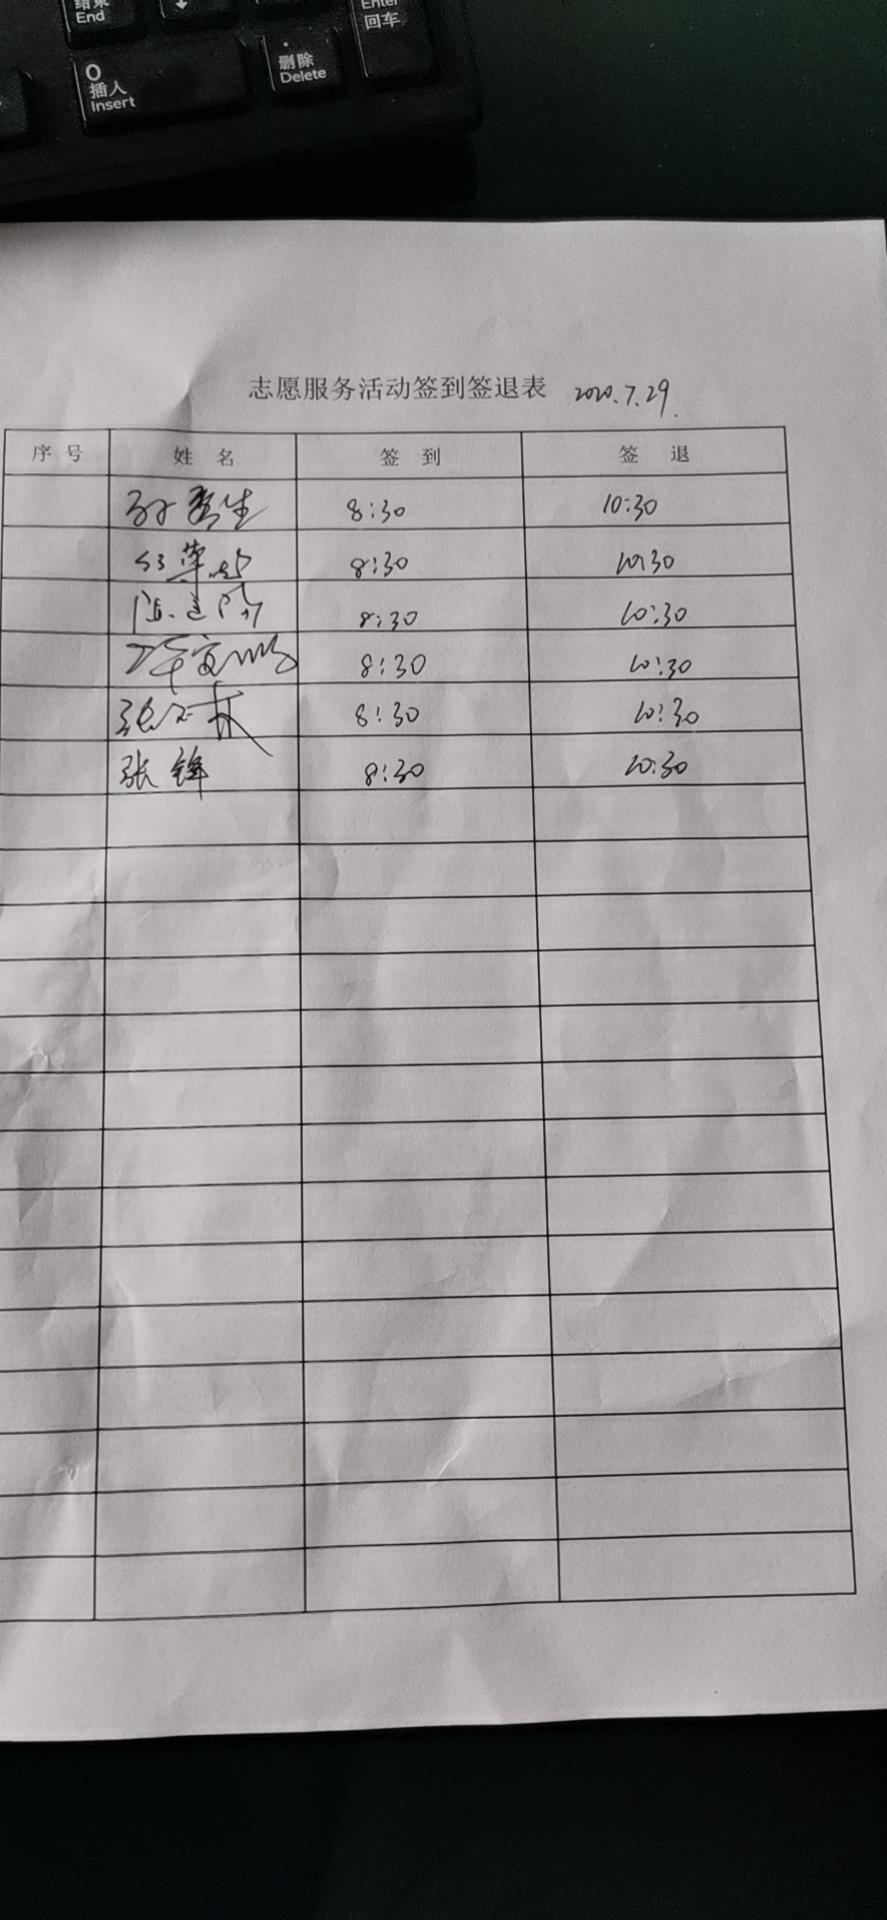 结束
End
Enter
回车
0
插入
Insert
.
删除
Delete
志愿服务活动签到签退表 2020.7.29.
序号 姓名 签到 签退
8:30 10:30
8:30 10:30
8:30 10:30
8:30 10:30
8:30 10:30
张锋 8:30 10:30